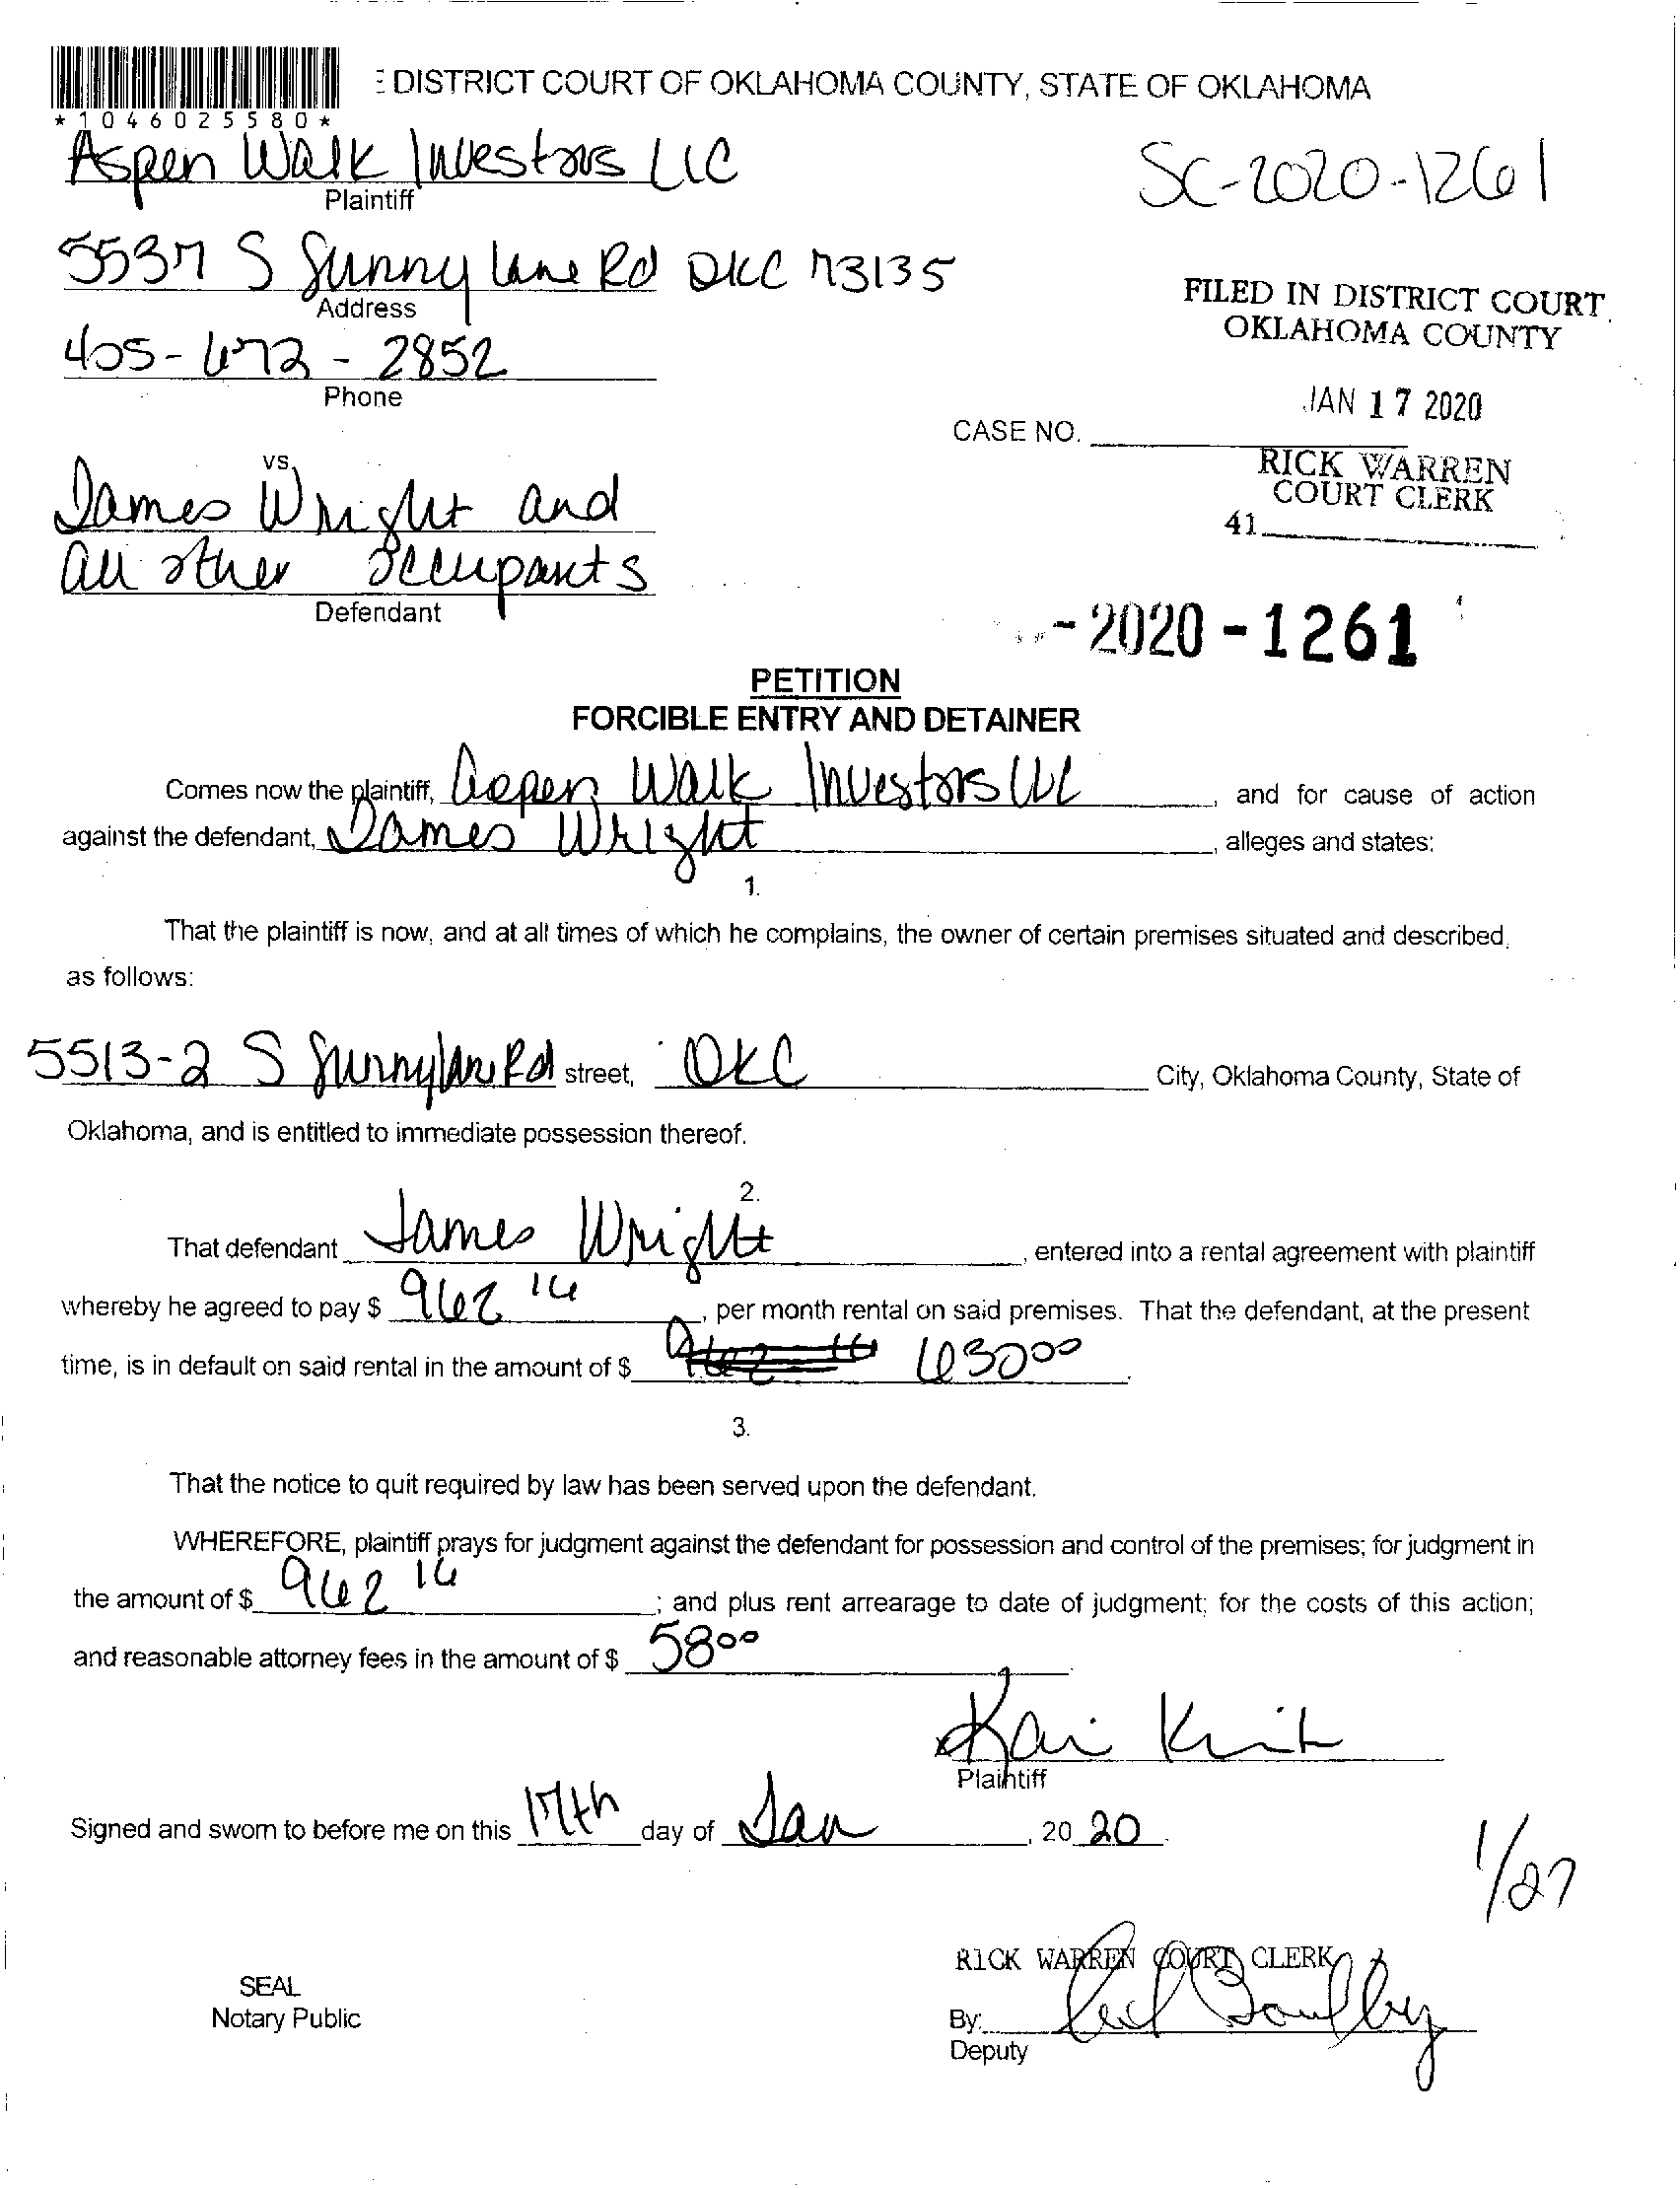 DISTRICT COURT OF OKLAHOMA COUNTY, STATE OF OKLAHOMA
*1046025580*
Aspen Walk Investors LLC
Plaintiff
SC-2020-1261
5537 S Sunny Lane Rd OKC 73135
Address
FILED IN DISTRICT COURT
OKLAHOMA COUNTY
405-672-2852
Phone
JAN 17 2020
CASE NO.
RICK WARREN
COURT CLERK
41
vs.
James Wright and
all other occupants
Defendant
-2020-1261
PETITION
FORCIBLE ENTRY AND DETAINER
Comes now the plaintiff, Aspen Walk Investors LLC, and for cause of action
against the defendant, James Wright, alleges and states:
1.
That the plaintiff is now, and at all times of which he complains, the owner of certain premises situated and described,
as follows:
5513-2 S Sunnylane Rd street, OKC City, Oklahoma County, State of
Oklahoma, and is entitled to immediate possession thereof.
2.
That defendant James Wright, entered into a rental agreement with plaintiff
whereby he agreed to pay $ 962 16, per month rental on said premises. That the defendant, at the present
time, is in default on said rental in the amount of $ 962 16 630 00.
3.
That the notice to quit required by law has been served upon the defendant.
WHEREFORE, plaintiff prays for judgment against the defendant for possession and control of the premises; for judgment in
the amount of $ 962 16; and plus rent arrearage to date of judgment; for the costs of this action;
and reasonable attorney fees in the amount of $ 58 00
Plaintiff
Signed and sworn to before me on this 17th day of Jan, 20 20.
1/27
RICK WARREN COURT CLERK
SEAL
Notary Public
By:
Deputy